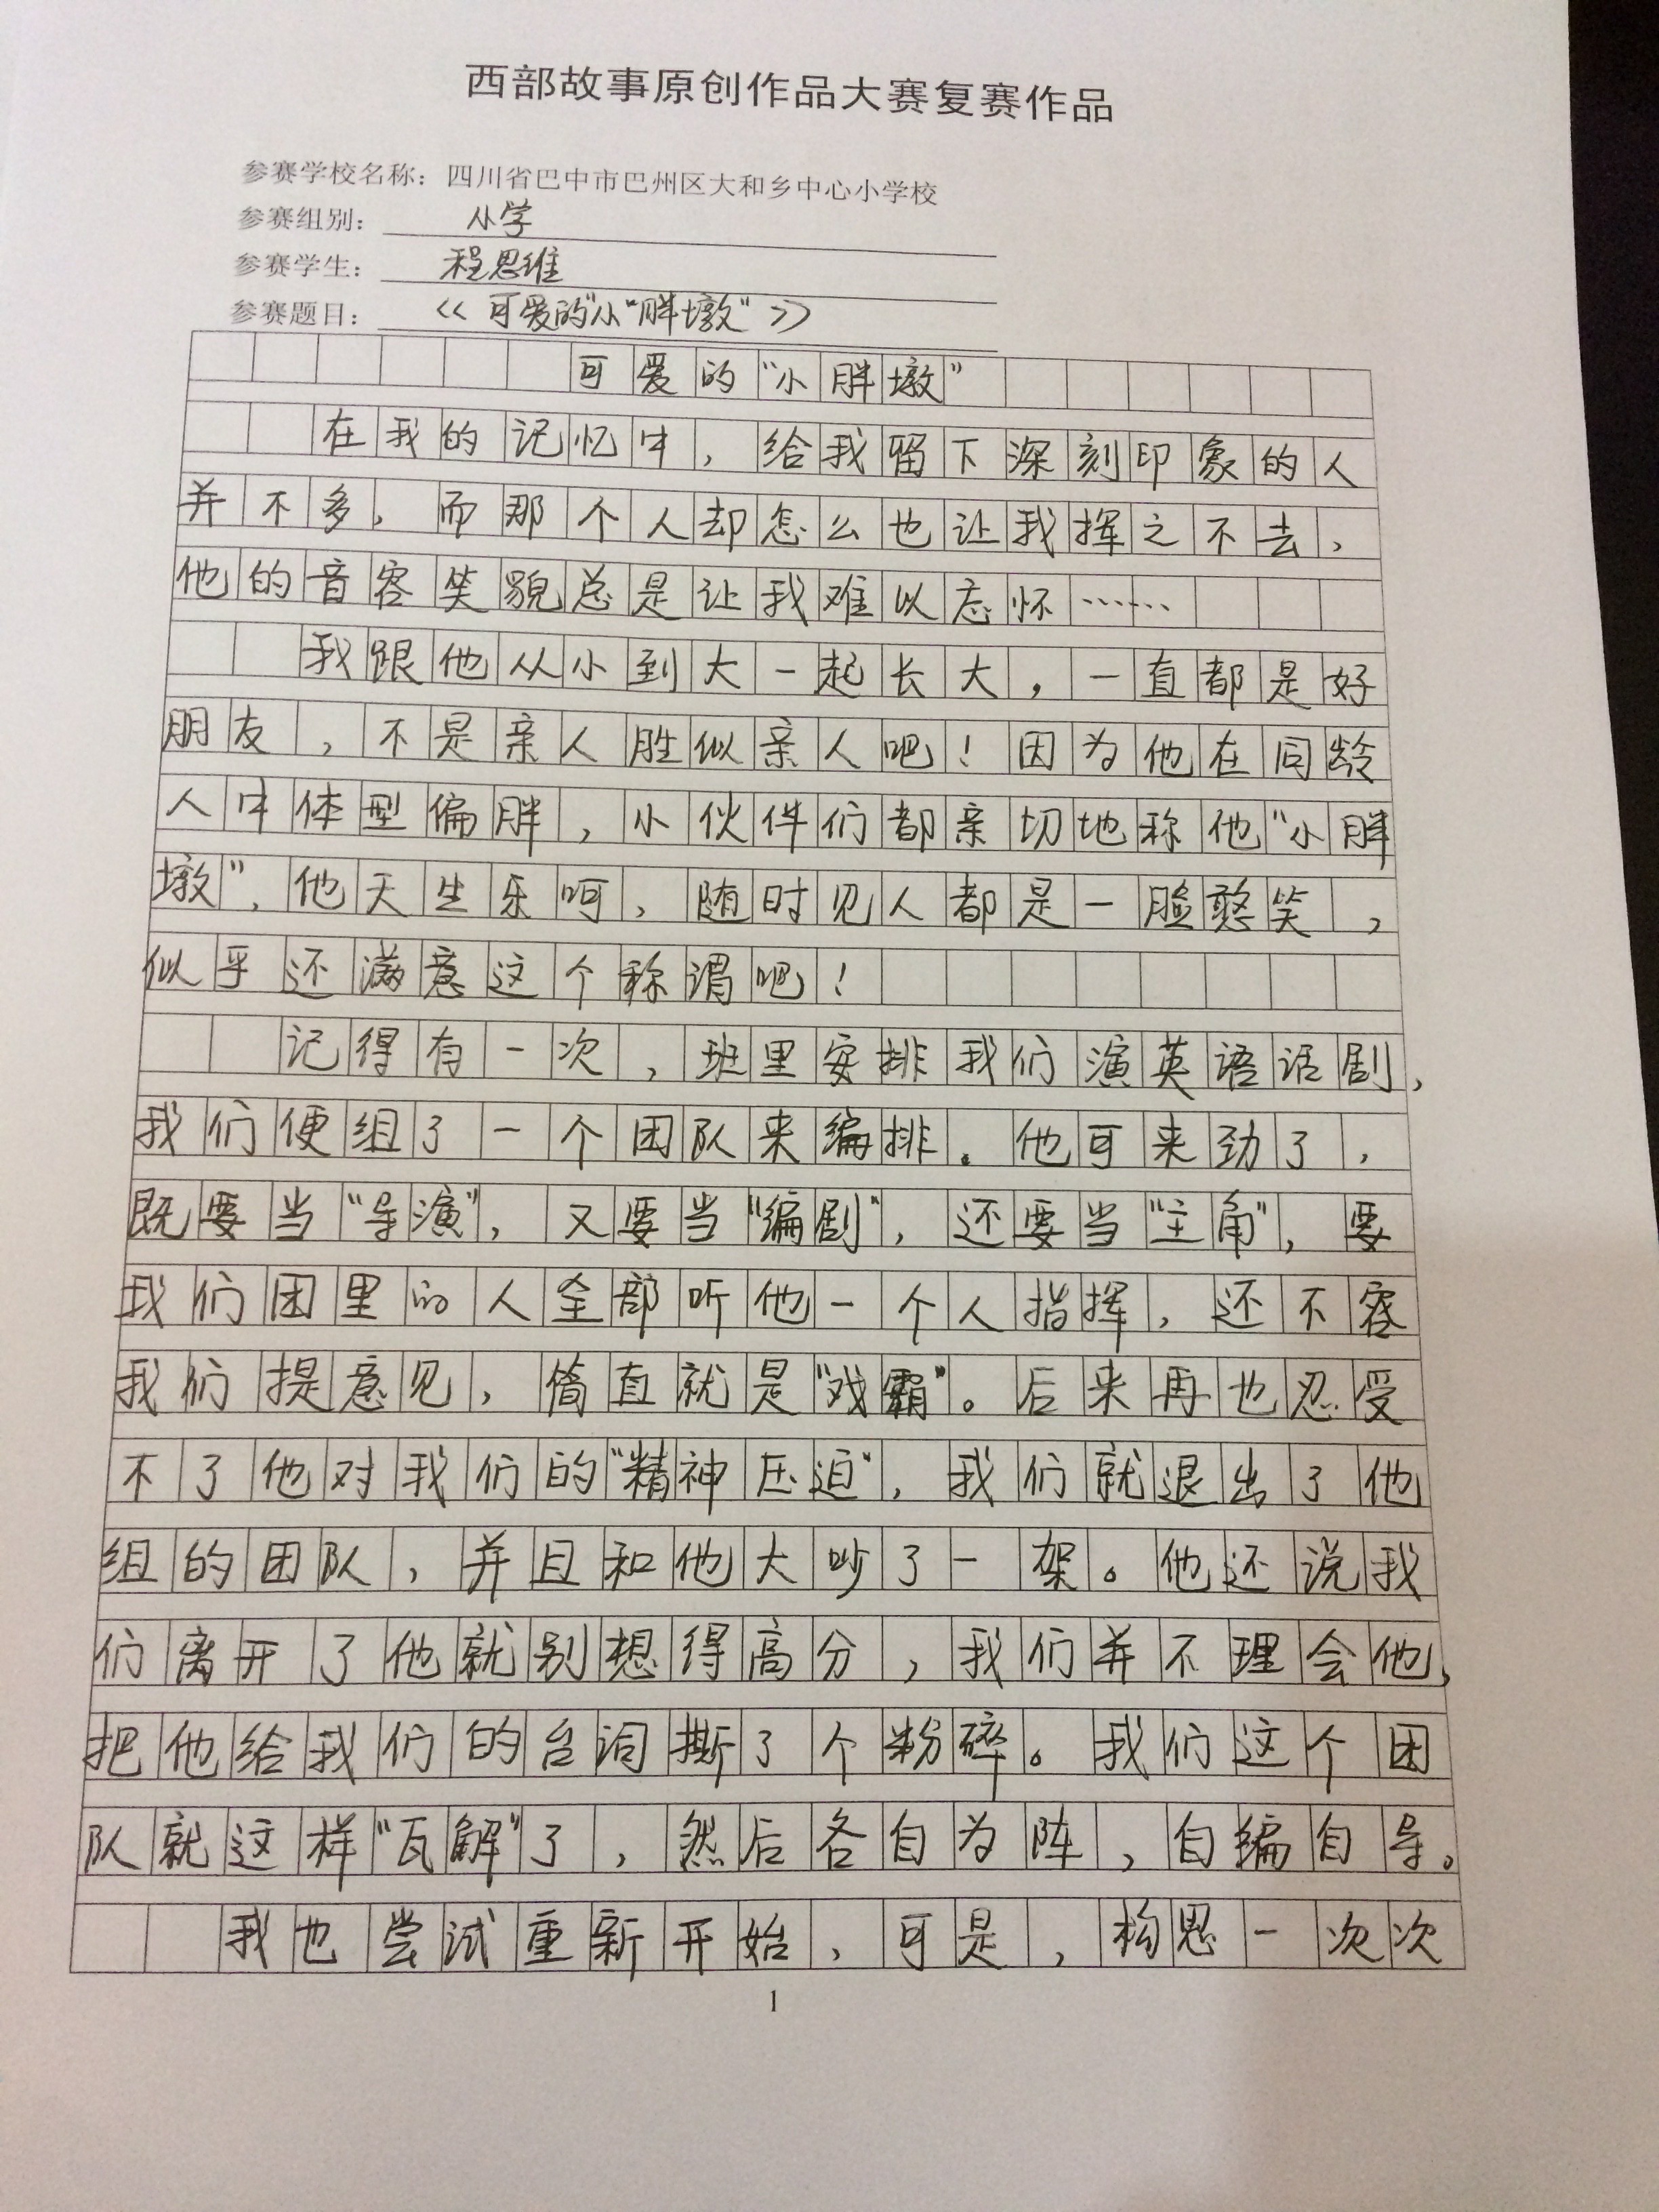 西部故事原创作品大赛复赛作品
参赛学校名称：四川省巴中市巴州区大和乡中心小学校
参赛组别：小学
参赛学生：程思维
参赛题目：《可爱的"小"胖墩"》
可爱的"小胖墩"
在我的记忆中，给我留下深刻印象的人
并不多，而那个人却怎么也让我挥之不去，
他的音容笑貌总是让我难以忘怀……
我跟他从小到大一起长大，一直都是好
朋友，不是亲人胜似亲人吧！因为他在同龄
人中体型偏胖，小伙伴们都亲切地称他"小胖
墩"，他天生乐呵，随时见人都是一脸憨笑，
似乎还满意这个称谓吧！
记得有一次，班里安排我们演英语话剧，
我们便组了一个团队来编排。他可来劲了，
既要当"导演"，又要当"编剧"，还要当"主角"，要
我们团里的人全部听他一个人指挥，还不容
我们提意见，简直就是"戏霸"。后来再也忍受
不了他对我们的"精神压迫"，我们就退出了他
组的团队，并且和他大吵了一架。他还说我
们离开了他就别想得高分，我们并不理会他，
把他给我们的台词撕了个粉碎。我们这个团
队就这样"瓦解"了，然后各自为阵，自编自导。
我也尝试重新开始，可是，构思一次次
1